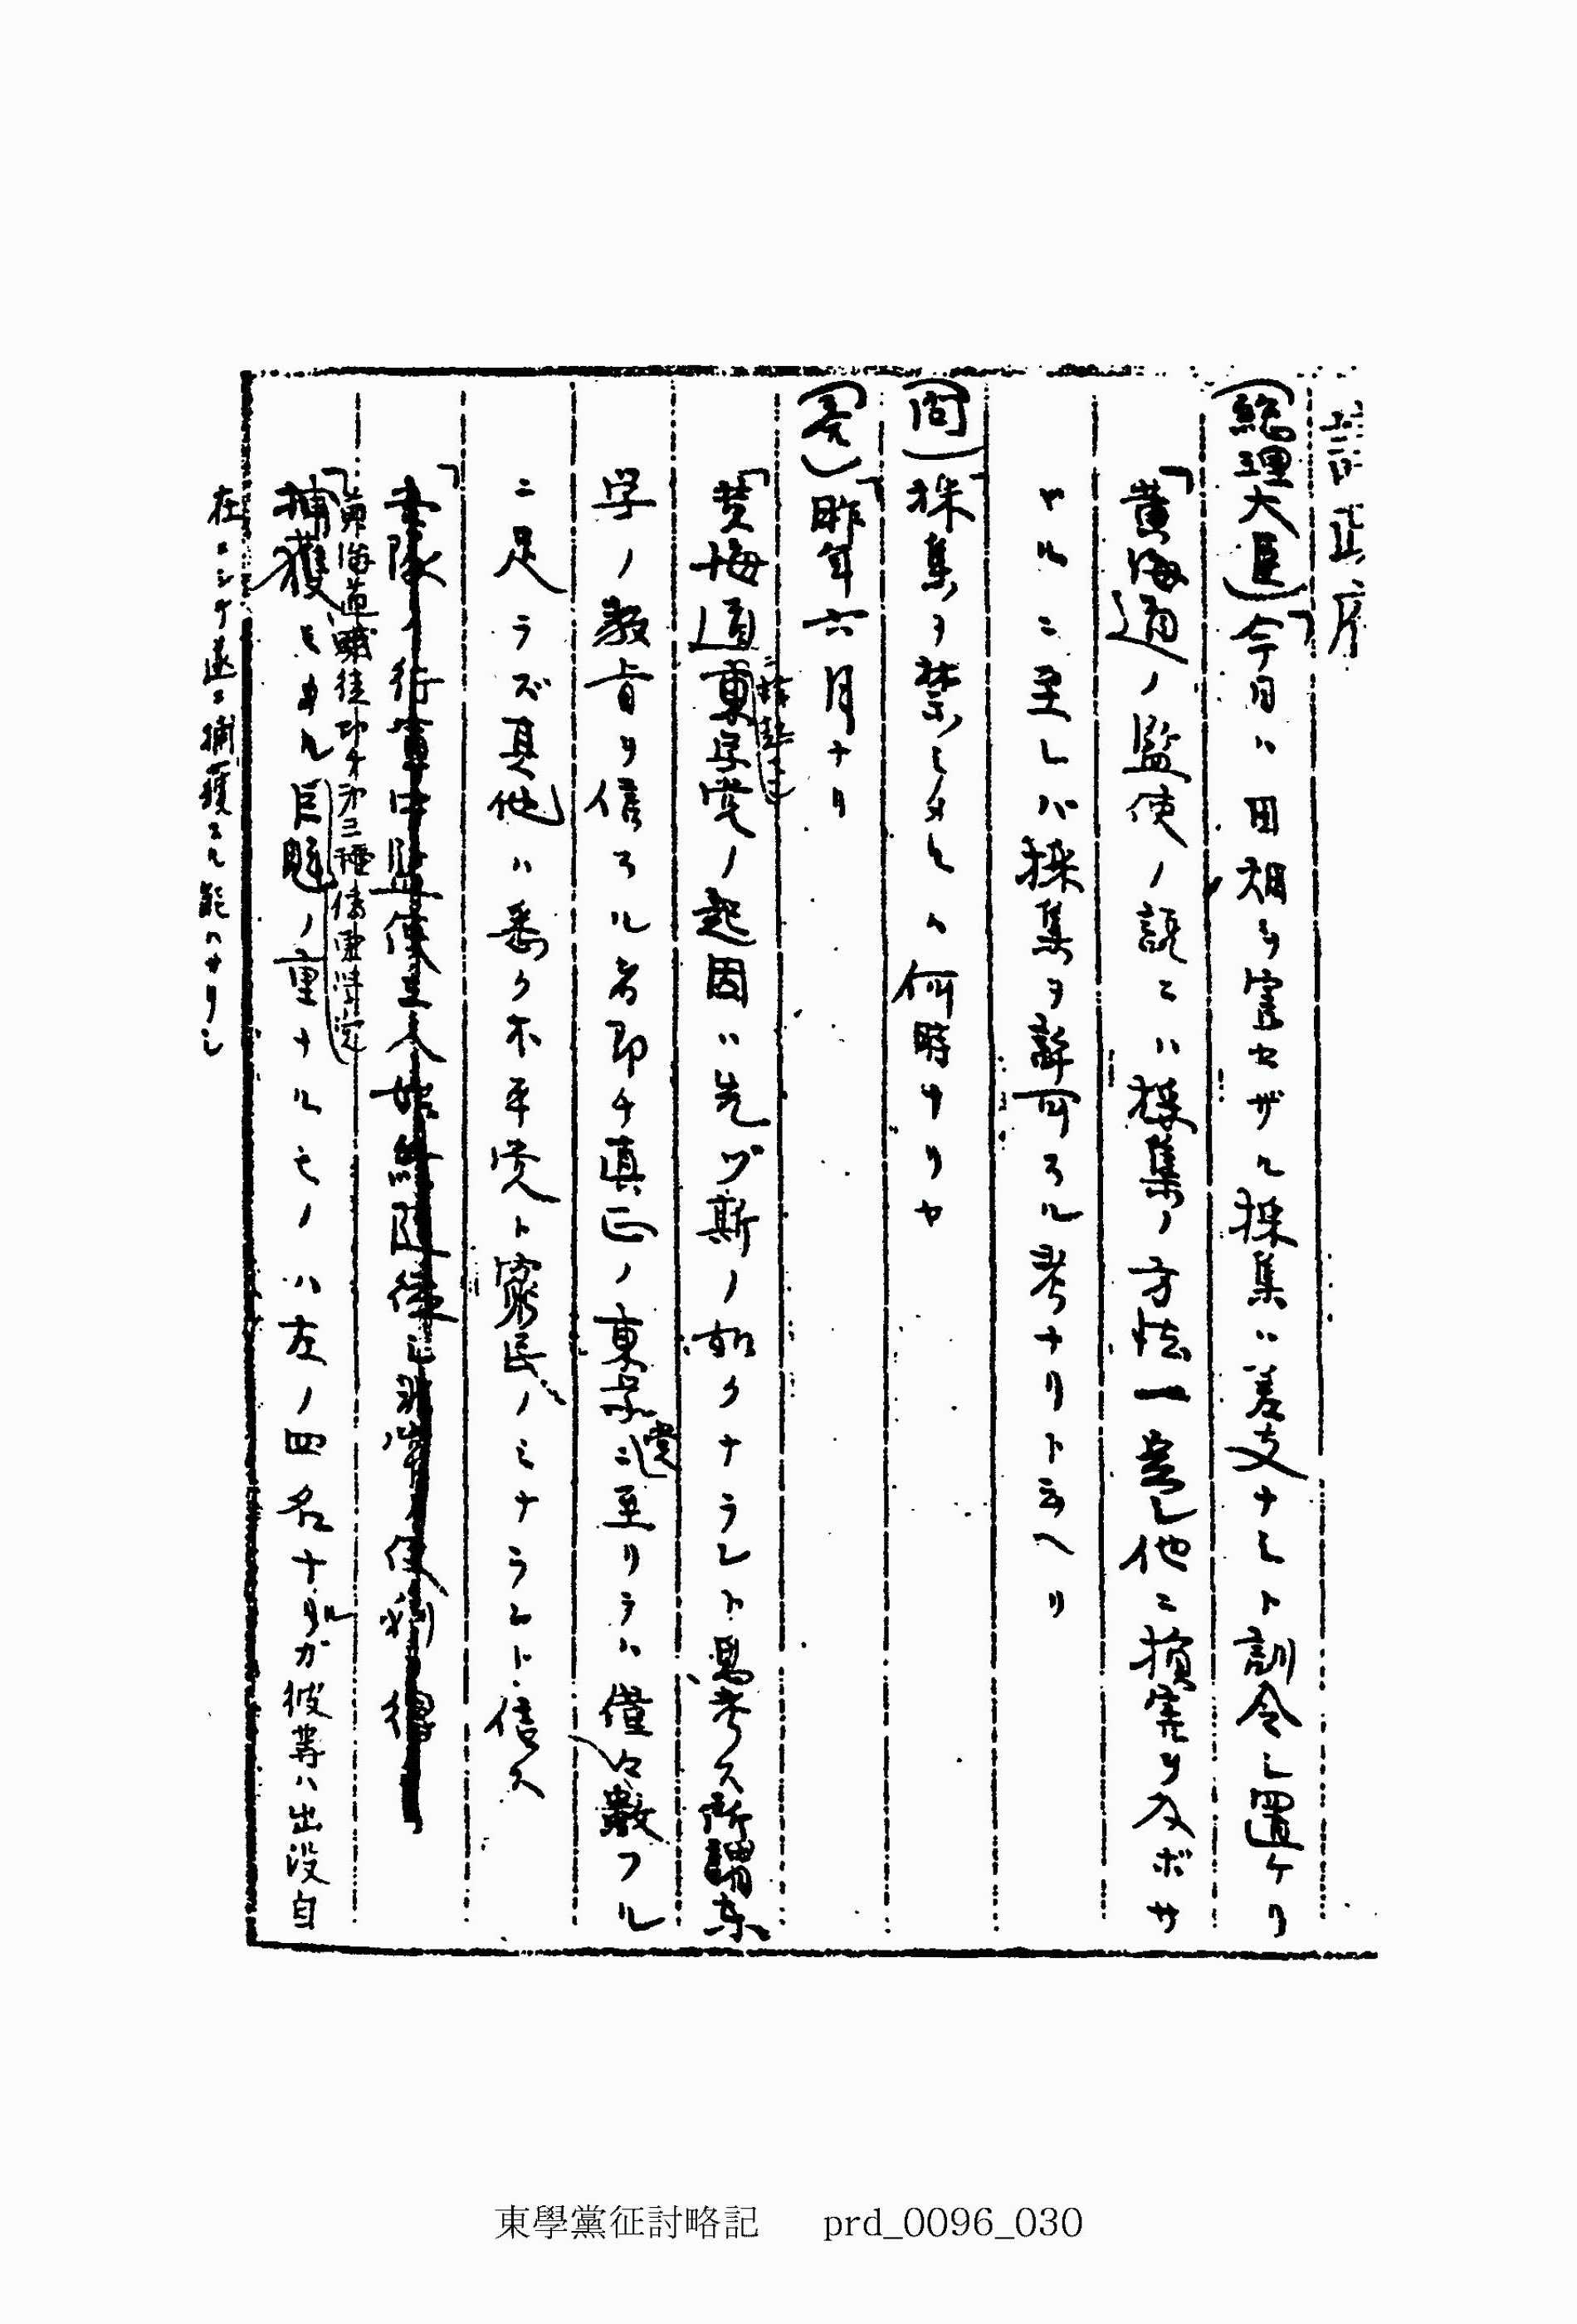 (総理大臣)「今日ハ田畑ヲ害セザル採集ハ差支ナシト訓令シ置ケリ
「黄海道ノ監使ノ説ニハ採集ノ方法一変シ他ニ損害ヲ及ボサ
ヾルニ至レバ採集ヲ許可スル考ナリト云ヘリ
(問)「採集ヲ禁シタルハ何時ナリヤ
(答)「昨年六月ナリ
「黄海道東学党ノ起因ハ先ヅ斯ノ如クナラント思考ス所謂東
学ノ教旨ヲ信スル者即チ真正ノ東学党ニ至リテハ僅々数フル
ニ足ラズ其他ハ悉ク不平党ト窮民ノミナラント信ス
捕獲シタル巨魁ノ重ナルモノハ左ノ四名ナルガ彼等ハ出没自
在ニシテ遂ニ捕獲スル能ハサリシ
東學黨征討略記 prd_0096_030